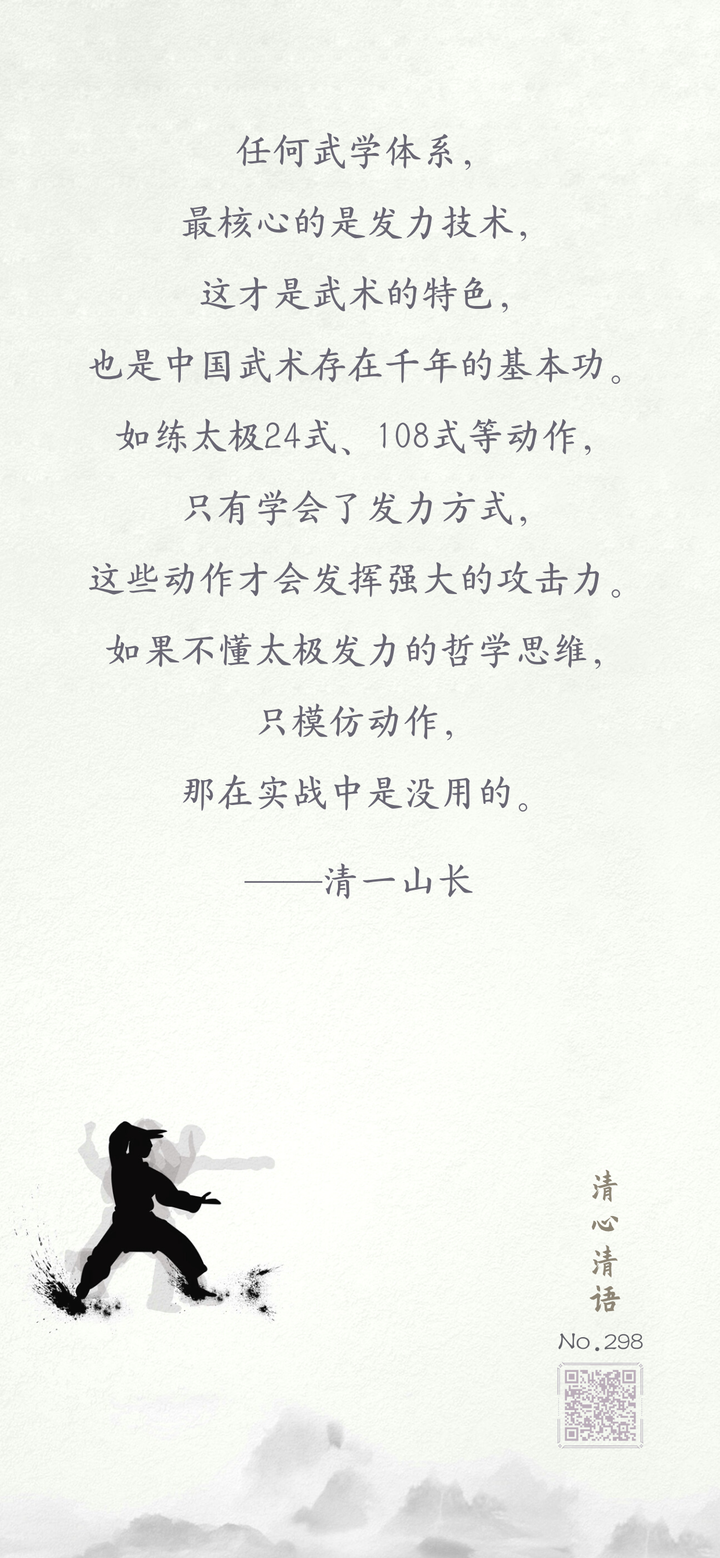 任何武学体系，
最核心的是发力技术，
这才是武术的特色，
也是中国武术存在千年的基本功。
如练太极24式、108式等动作，
只有学会了发力方式，
这些动作才会发挥强大的攻击力。
如果不懂太极发力的哲学思维，
只模仿动作，
那在实战中是没用的。
——清一山长
清心清语
No.298